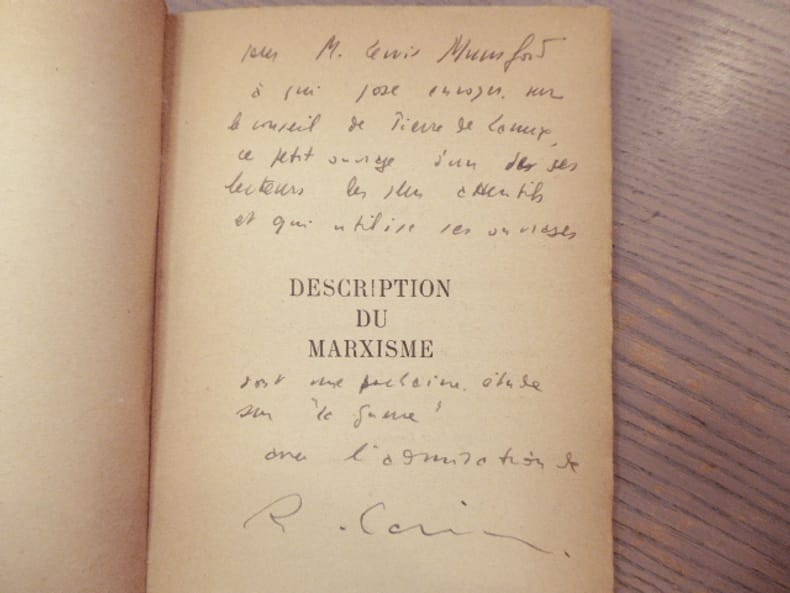 pour M. Lewis Mumford
à qui j'ose envoyer, sur
le conseil de Pierre de Lanux,
ce petit ouvrage d'un de ses
lecteurs les plus attentifs
et qui utilise ses ouvrages
DESCRIPTION
DU
MARXISME
dont une prochaine étude
sur "la guerre"
avec l'admiration de
R.